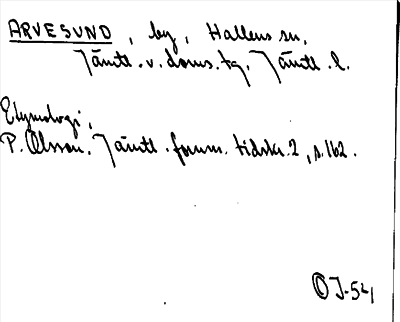 ARVESUND, by, Hallens sn,
Jämtl. v. doms. tg, Jämtl. l.
Etymologi,
P. Olsson. Jämtl. fornm. tidskr. 2, s. 162.
OJ-54